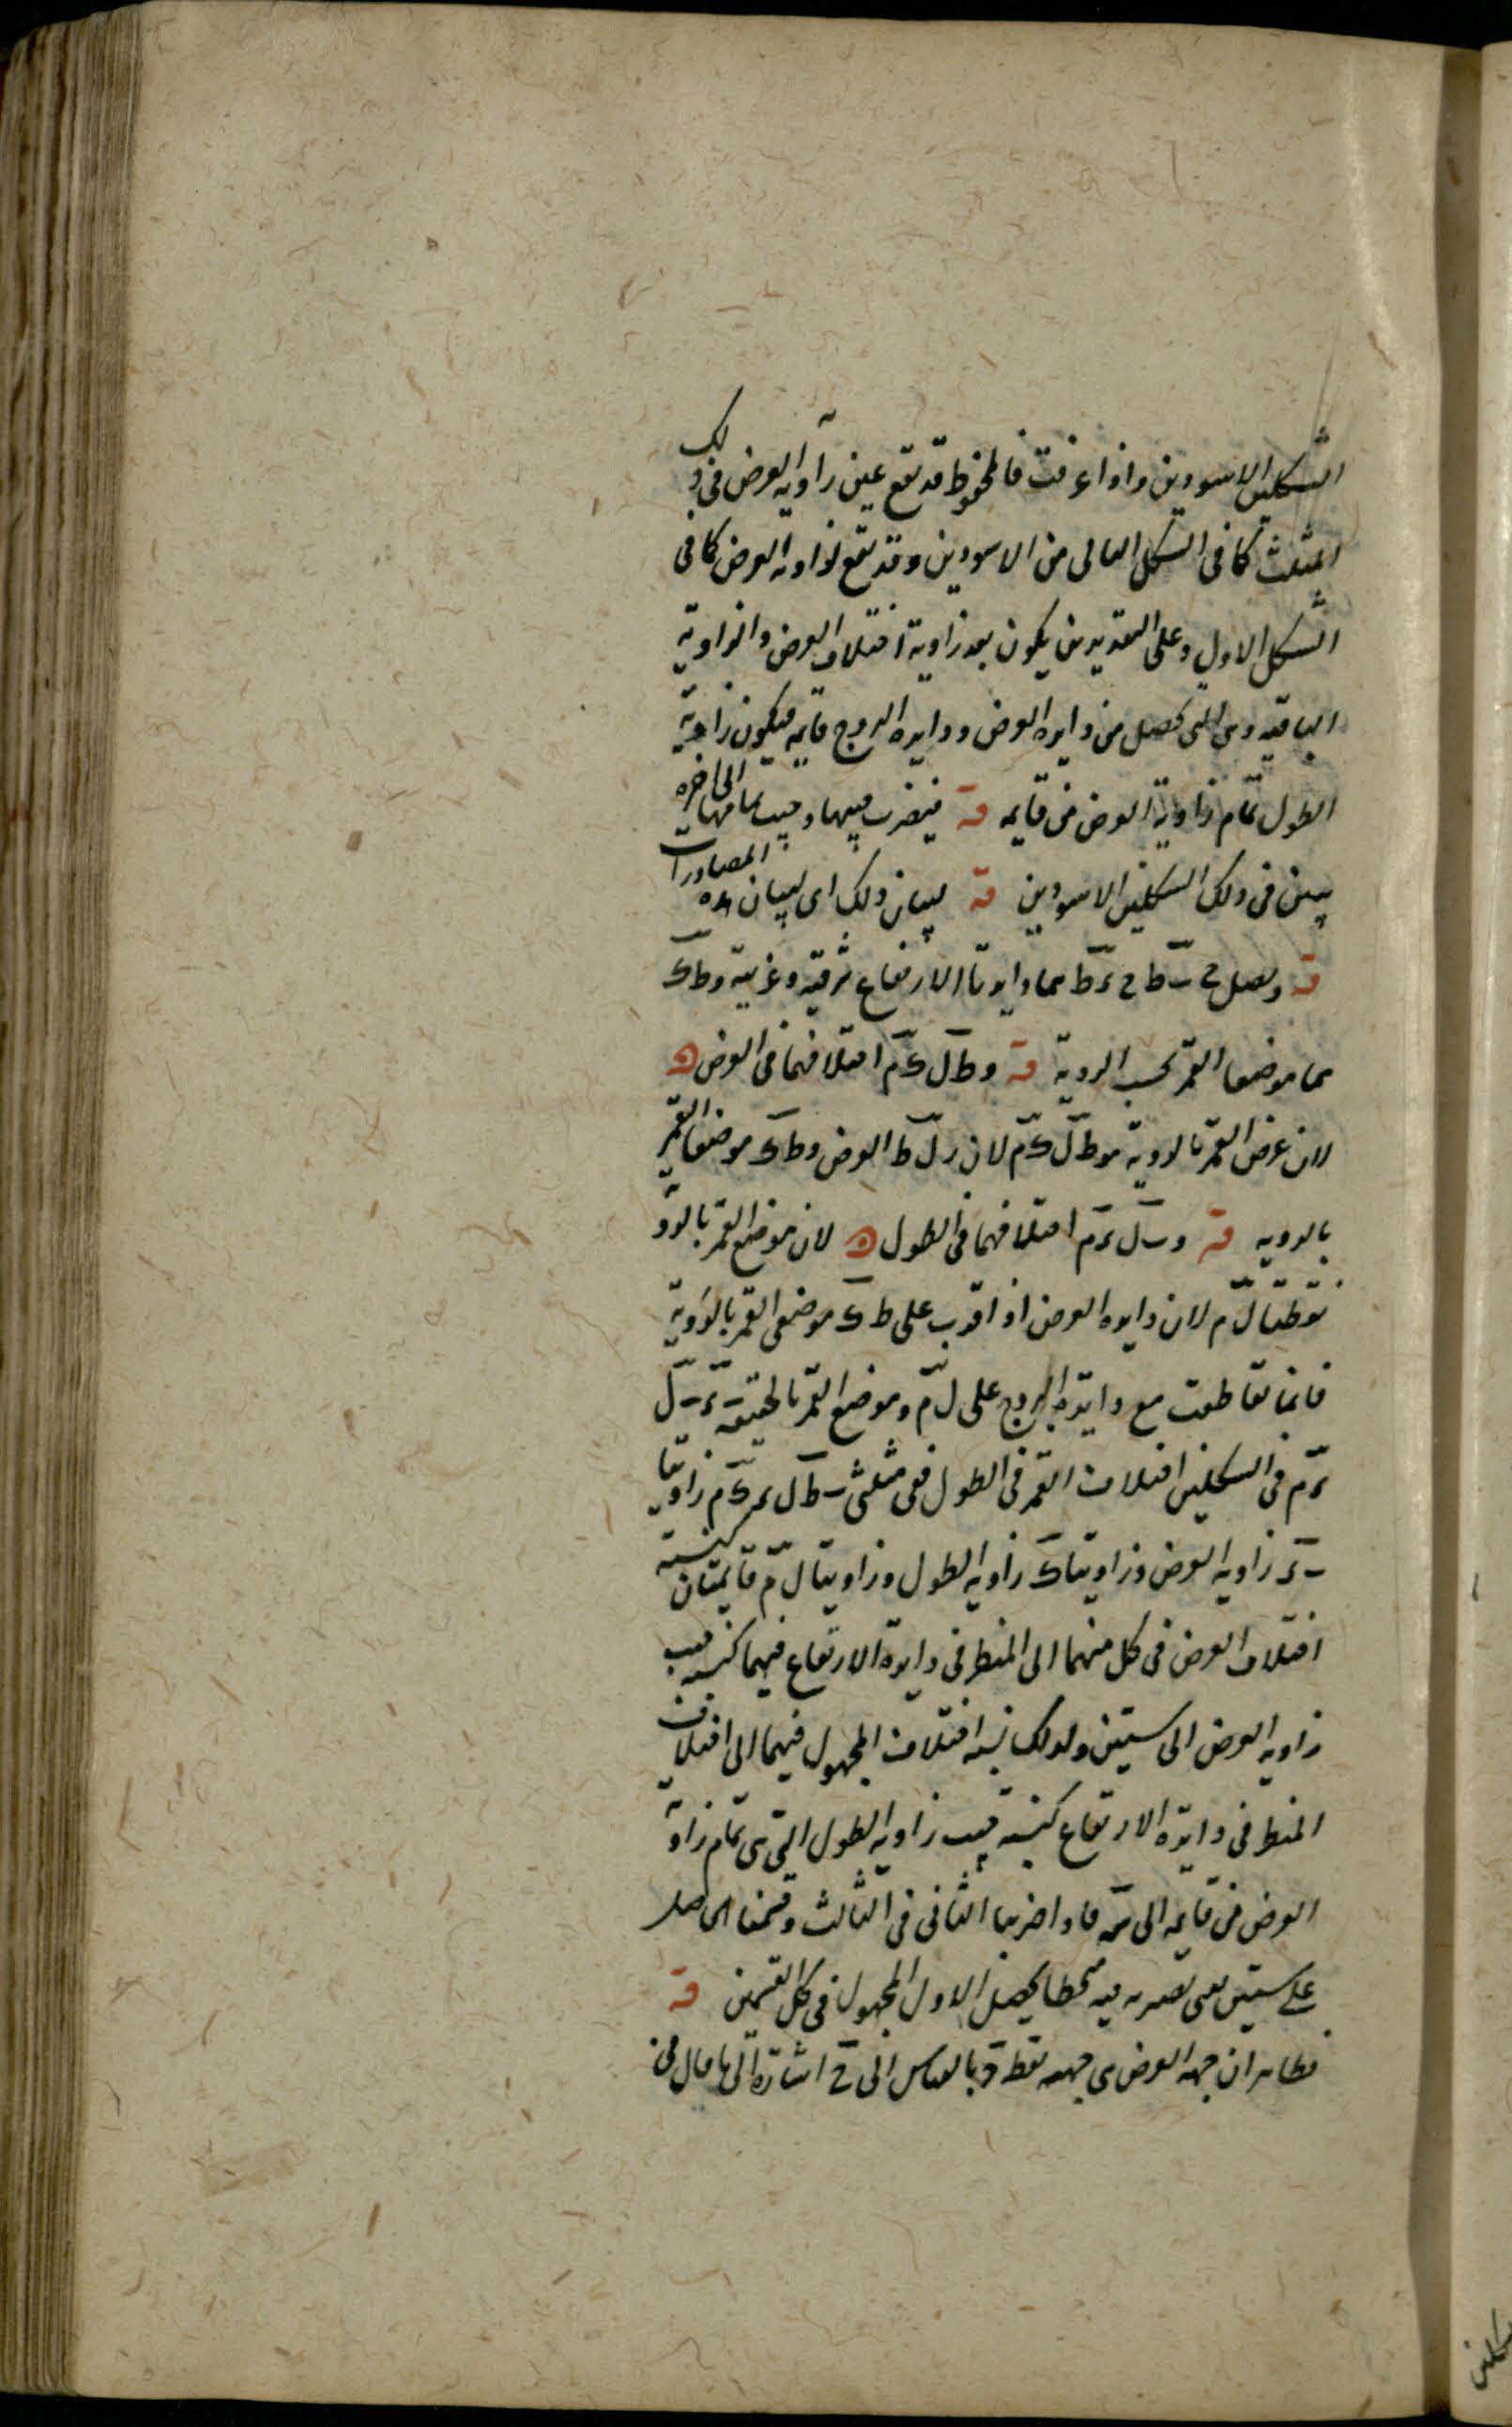 الشكلين الاسودين واذا عرفت فالمخروط قد تقع عين زاويه العرض فى ذلك
المثلث كما فى الشكل الثانى من الاسودين وقد تقع لزاويه العرض كما فى
الشكل الاول وعلى التقديرين يكون بعد زاوية اختلاف العرض والزاوية
الباقيه وهى التى تحصل من دايره العرض ودايره البروج قايمه فيكون زاوية
الطول تمام زاوية العرض من قايمه قه فيضرب جيبها وجيب تمامها الى اخره
يبين فى ذلك الشكلين الاسودين قه لبيان ذلك اى لبيان هذه المصادرات
قه ونصل ح ب ط ح ى ط هما دايرتا الارتفاع شرقيه وغربيه وط ك
هما موضعا القمر بحسب الروية قه وط ل ك م اختلافهما فى العرض ه
لان عرض القمر بالرويه هو ط ل ك م لان ر ل ط العرض وط ك موضعا القمر
بالرويه قه وب ل ى م اختلافهما فى الطول ه لان موضع القمر بالروية
نقطتا ل م لان دايره العرض اذا مرت على ط ك موضعى القمر بالروية
فانما تقاطعت مع دايرة البروج على ل م وموضع القمر بالحقيقة ى ب ل
ى م فى الشكلين اختلاف القمر فى الطول ففى مثلثى ب ط ل ى ك م زاويتا
ب ى زاويه العرض وزاويتا ك زاويه الطول وزاويتا ل م قايمتان كنسبة
اختلاف العرض فى كل منهما الى المنظر فى دايرة الارتفاع فيهما كنسبة جيب
زاويه العرض الى ستين ولذلك نسبه اختلاف المجهول فيهما الى اختلاف
المنظر فى دايرة الارتفاع كنسبة جيب زاويه الطول التى هى تمام زاوية
العرض من قايمه الى س فاذا ضربنا الثانى فى الثالث وقسمنا الحاصل
على ستين يعنى نعتبره فيه منحطا يحصل الاول المجهول فى كل القسمين قه
فظاهر ان جهه العرض هى جهه نقطة و بالقياس الى ح اشارة الى ما قال من